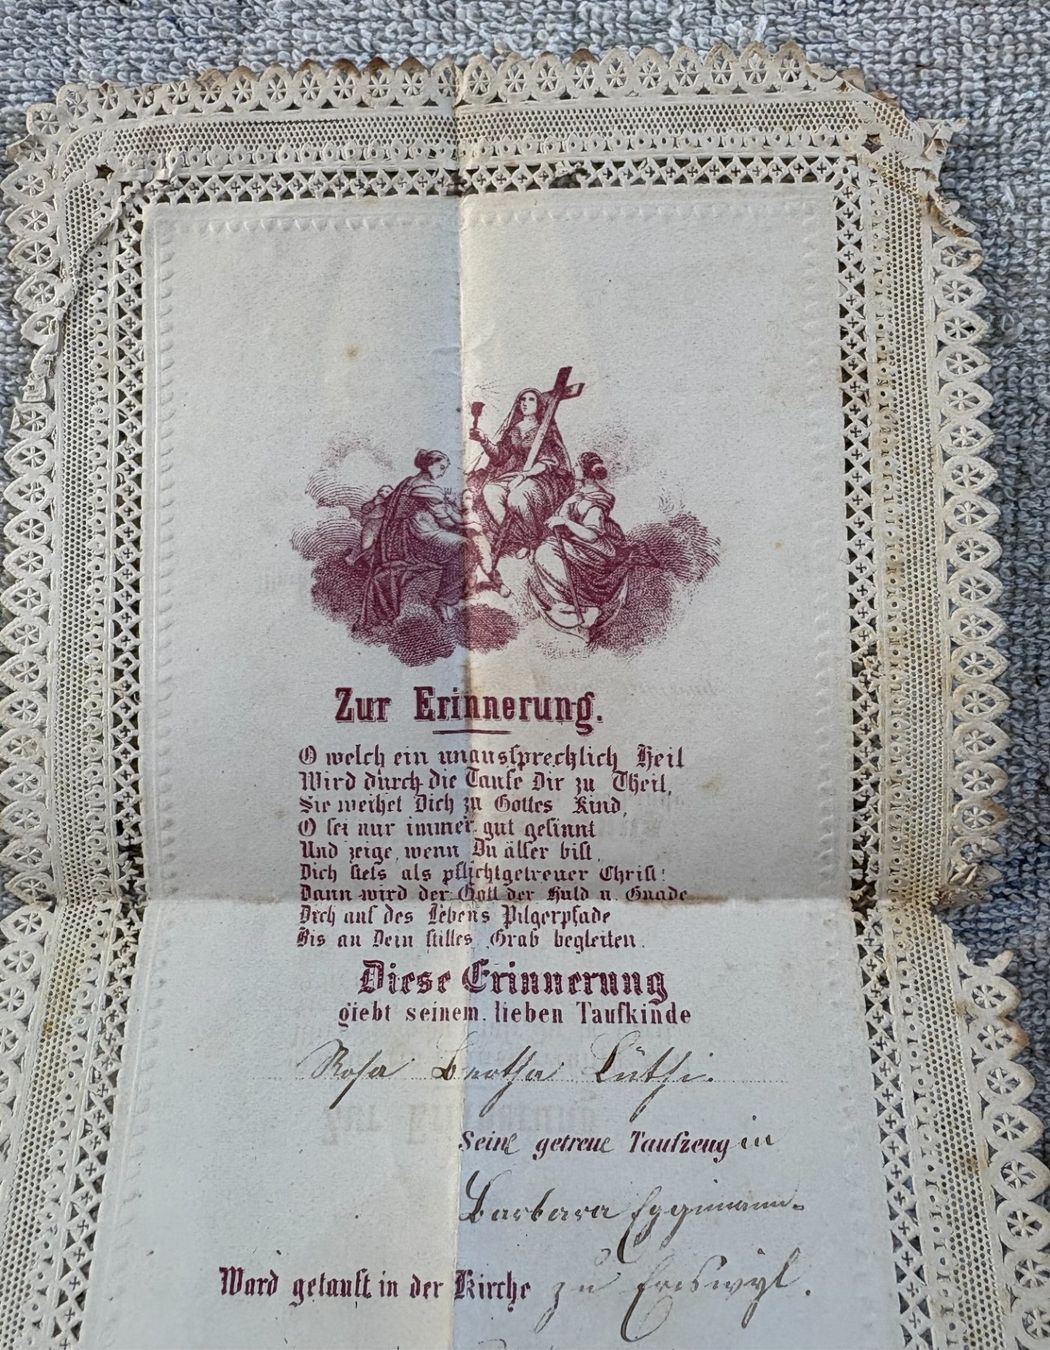 Zur Erinnerung.
O welch ein unaussprechlich Heil
Wird durch die Taufe Dir zu Theil,
Sie weihet Dich zu Gottes Kind,
O sei nur immer gut gesinnt
Und zeige, wenn Du älter bist,
Dich stets als pflichtgetreuer Christ!
Dann wird der Gott der Huld u. Gnade
Dich auf des Lebens Pilgerpfade
Bis an Dein stilles Grab begleiten.
Diese Erinnerung
giebt seinem lieben Taufkinde
Rosa Bertha Lüthi.
Seine getreue Taufzeugin
Barbara Eggimann.
Ward getauft in der Kirche zu Eriswyl.